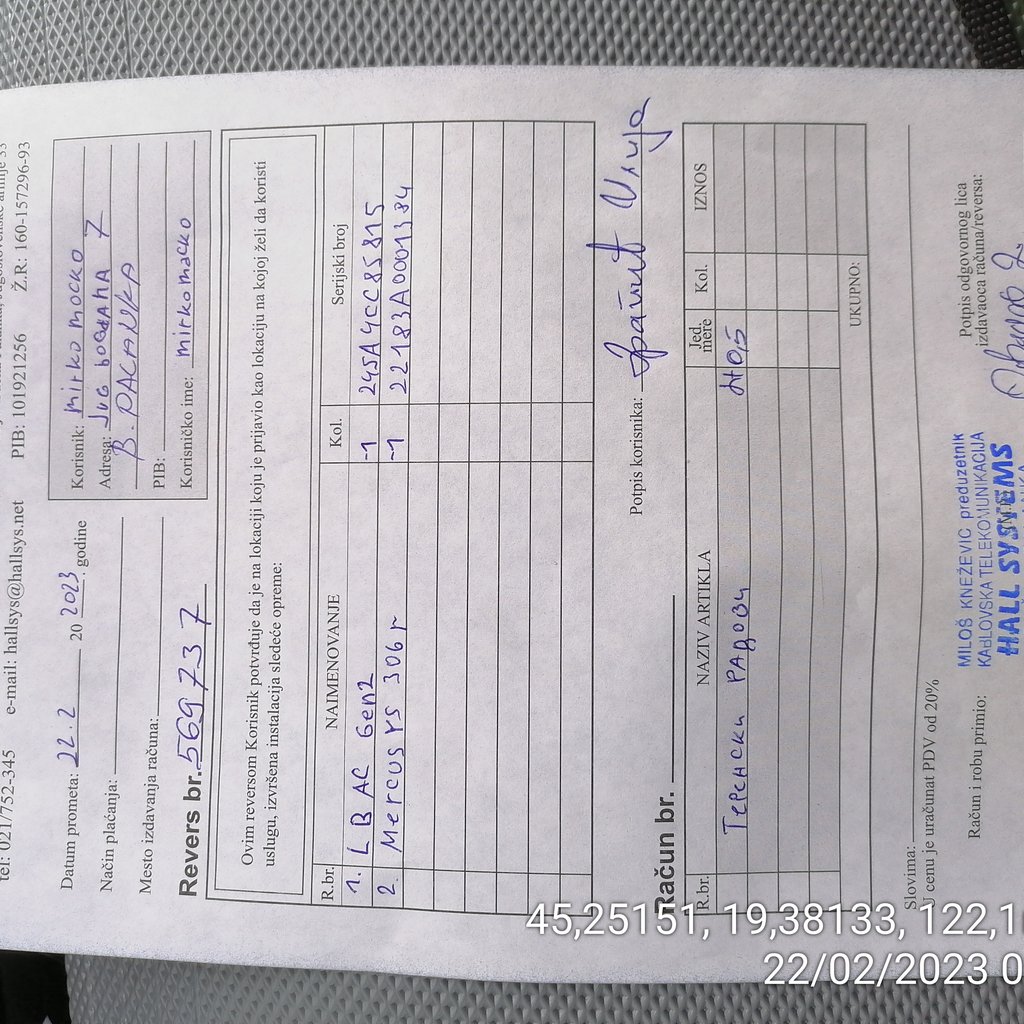 tel: 021/752-345 e-mail: hallsys@hallsys.net PIB: 101921256 Ž.R: 160-157296-93
Datum prometa: 22.2 2023. godine
Način plaćanja:
Mesto izdavanja računa:
Revers br. 569737
Korisnik: mirko mocko
Adresa: Jug bogdana 7
B. PALANKA
PIB:
Korisničko ime: mirkomocko
Ovim reversom Korisnik potvrđuje da je na lokaciji koju je prijavio kao lokaciju na kojoj želi da koristi
uslugu, izvršena instalacija sledeće opreme:
R.br. NAIMENOVANJE Kol. Serijski broj
1. LBAC Gen2 1 245A4CC85815
2. Mercusys 306r 1 22183A0001384
Potpis korisnika:
Račun br.
R.br. NAZIV ARTIKLA Jed. mere Kol. IZNOS
Теренски РАДОВИ
UKUPNO:
Slovima:
U cenu je uračunat PDV od 20%
Račun i robu primio:
MILOŠ KNEŽEVIĆ preduzetnik
KABLOVSKA TELEKOMUNIKACIJA
HALL SYSTEMS
Potpis odgovornog lica
izdavaoca računa/reversa:
45,25151, 19,38133, 122,1
22/02/2023 0